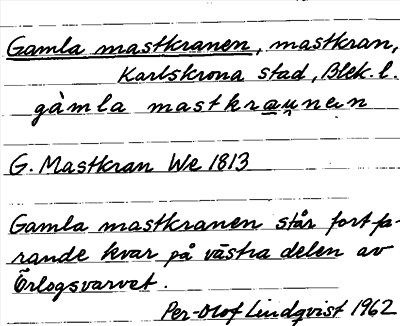 Gamla mastkranen, mastkran,
Karlskrona stad, Blek. l.
gàmla mastkra̲ṳnen
G. Mastkran We 1813
Gamla mastkranen står fortfa-
rande kvar på västra delen av
Örlogsvarvet.
Per-Olof Lindqvist 1962